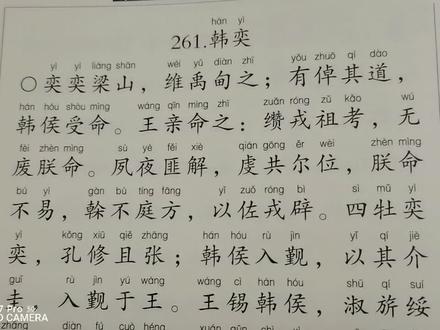 hán yì
261.韩奕
yì yì liáng shān wéi yǔ diàn zhī yǒu zhuō qí dào
○奕奕梁山，维禹甸之；有倬其道，
hán hóu shòu mìng wáng qīn mìng zhī zuǎn róng zǔ kǎo wú
韩侯受命。王亲命之：缵戎祖考，无
fèi zhèn mìng sù yè fěi xiè qián gōng ěr wèi zhèn mìng
废朕命。夙夜匪解，虔共尔位，朕命
bú yì gàn bù tíng fāng yǐ zuǒ róng bì sì mǔ yì
不易，榦不庭方，以佐戎辟。四牡奕
yì kǒng xiū qiě zhāng hán hóu rù jìn yǐ qí jiè
奕，孔修且张；韩侯入觐，以其介
guī rù jìn yú wáng wáng cì hán hóu shū qí suí
圭，入觐于王。王锡韩侯，淑旂绥
zhāng diàn fú cuò héng
7 Pro
D CAMERA